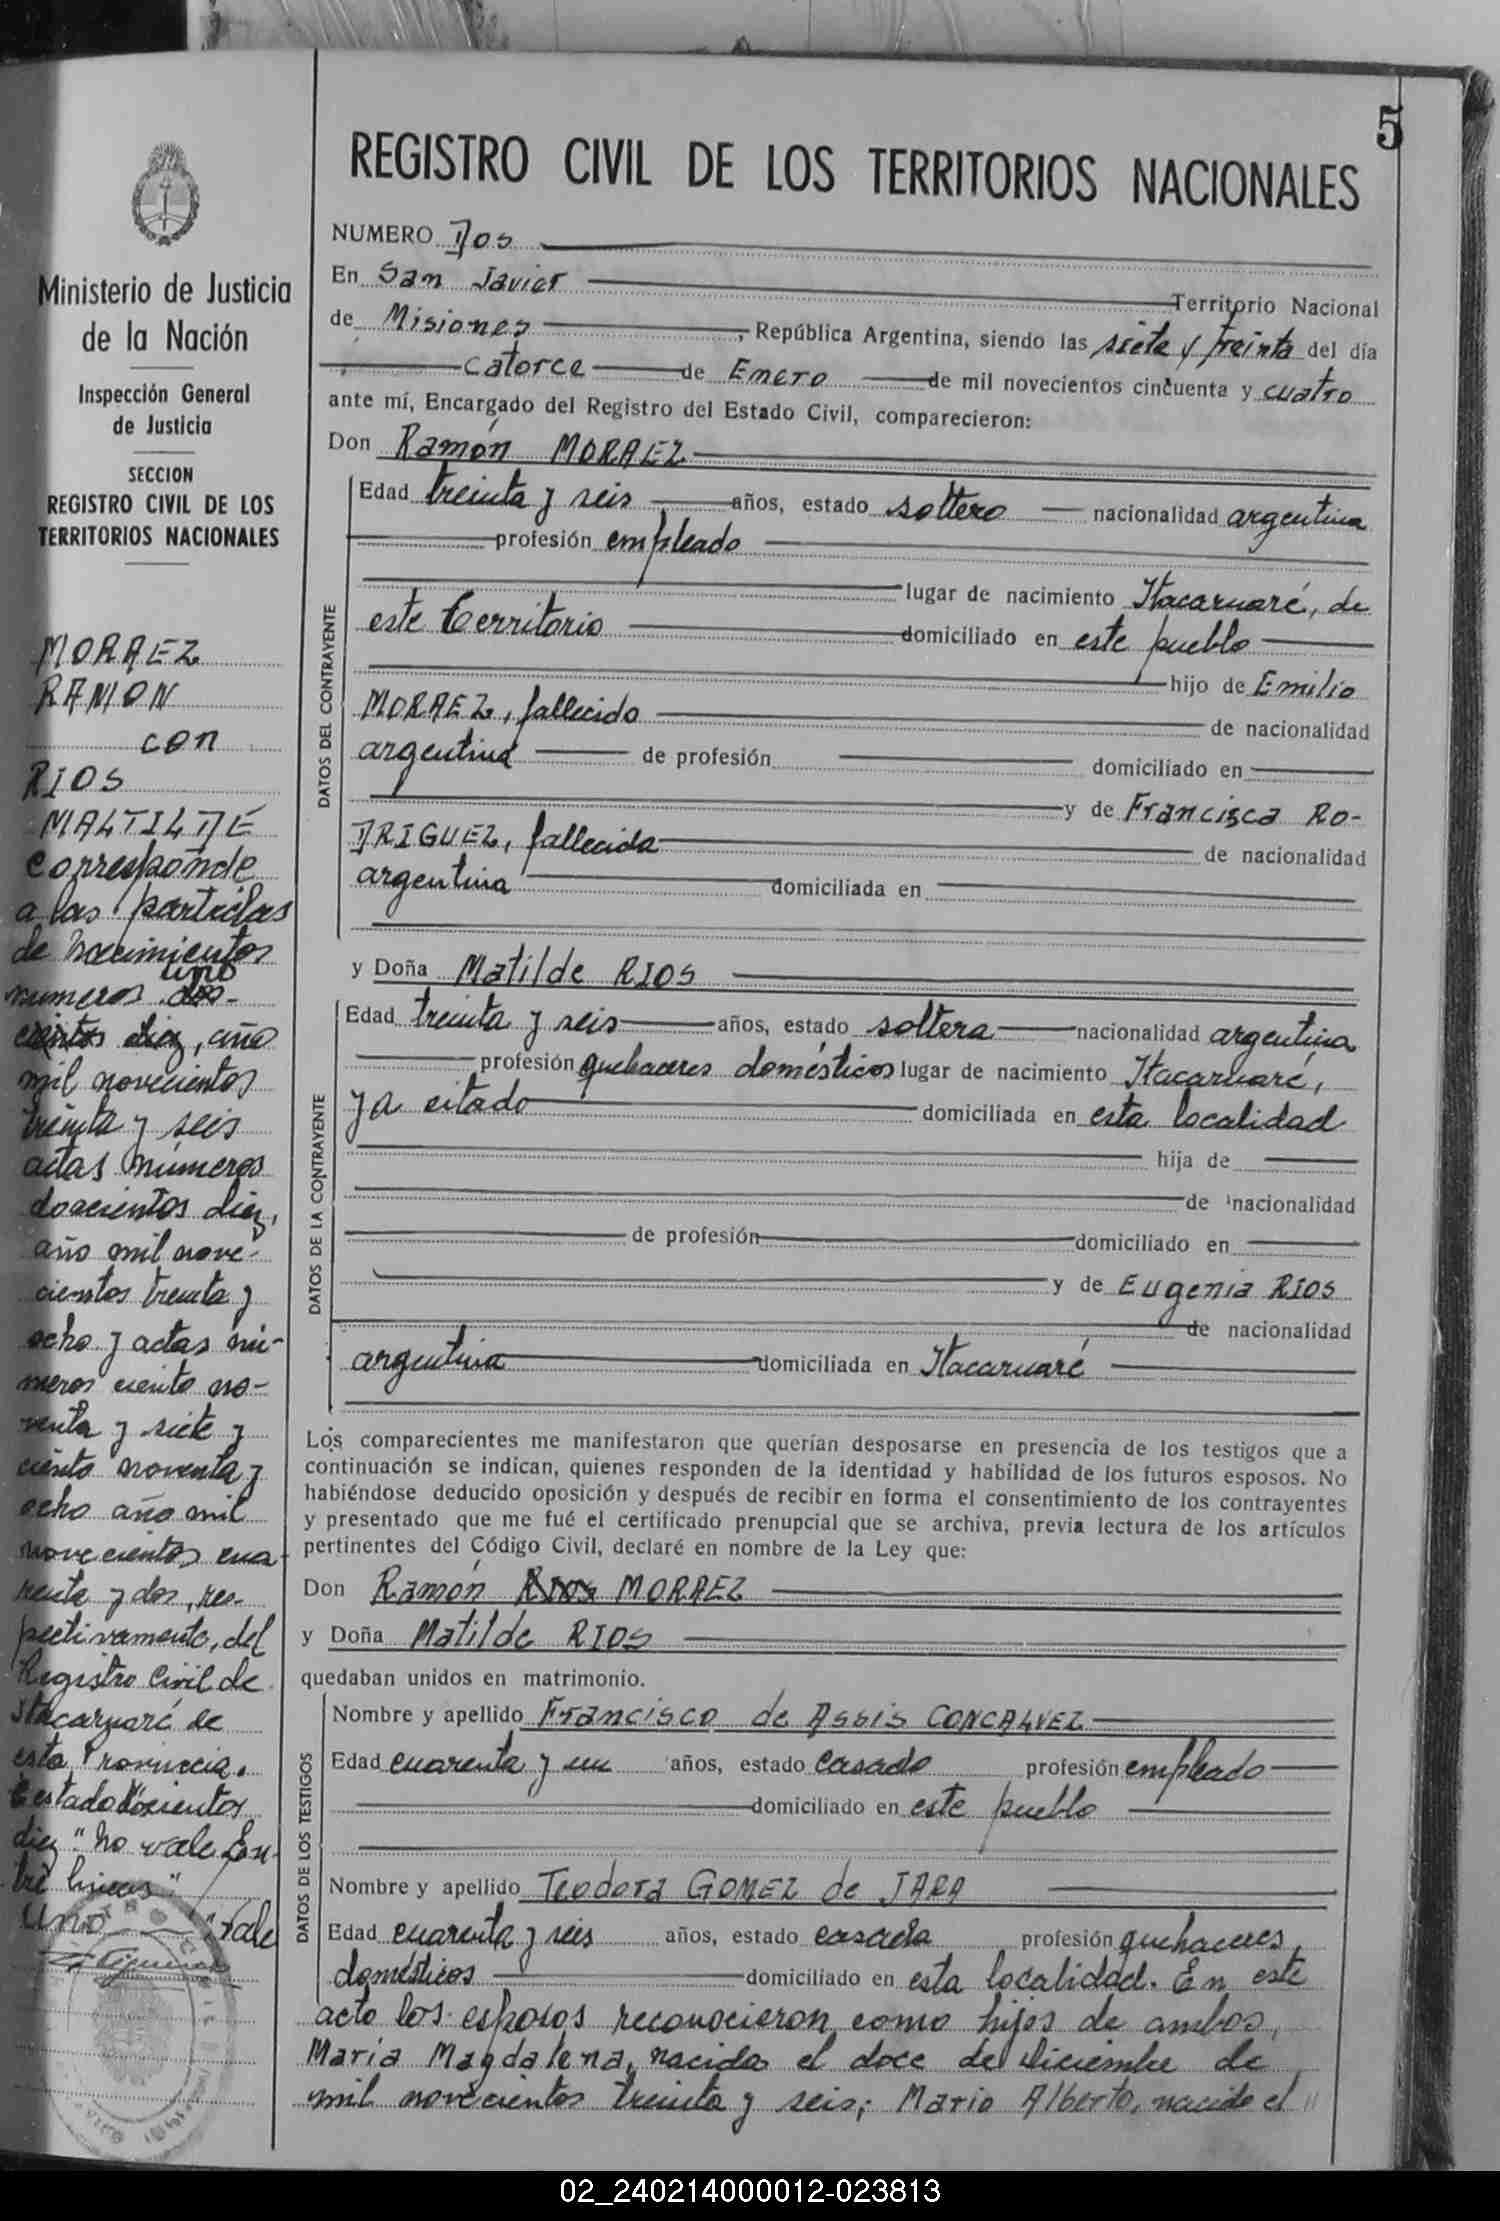 5
REGISTRO CIVIL DE LOS TERRITORIOS NACIONALES
Ministerio de Justicia
de la Nación
Inspección General
de Justicia
SECCION
REGISTRO CIVIL DE LOS
TERRITORIOS NACIONALES
MORAEZ
RAMON
con
RIOS
MALTILDE
Corresponde
a las partidas
de nacimientos
uno
numeros dos-
cientos diez, año
mil novecientos
treinta y seis
actas números
doscientos diez,
año mil nove-
cientos treinta y
ocho y actas nú-
meros ciento no-
venta y siete y
ciento noventa y
ocho año mil
novecientos cua-
renta y dos, res-
pectivamente, del
Registro Civil de
Itacaruaré de
esta Provincia.
Testado "doscientos
diez" no vale En-
tre lineas "
uno" vale
NUMERO Dos
En San Javier Territorio Nacional
de Misiones, República Argentina, siendo las siete y treinta del día
catorce de Enero de mil novecientos cincuenta y cuatro
ante mí, Encargado del Registro del Estado Civil, comparecieron:
Don Ramón MORAEZ
DATOS DEL CONTRAYENTE
Edad treinta y seis años, estado soltero nacionalidad argentina
profesión empleado
lugar de nacimiento Itacaruaré, de
este Territorio domiciliado en este pueblo
hijo de Emilio
MORAEZ, fallecido de nacionalidad
argentina de profesión domiciliado en
y de Francisca RO-
DRIGUEZ, fallecida de nacionalidad
argentina domiciliada en
y Doña Matilde RIOS
DATOS DE LA CONTRAYENTE
Edad treinta y seis años, estado soltera nacionalidad argentina
profesión quehaceres domésticos lugar de nacimiento Itacaruaré,
ya citado domiciliada en esta localidad
hija de
de nacionalidad
de profesión domiciliado en
y de Eugenia RIOS
de nacionalidad
argentina domiciliada en Itacaruaré
Los comparecientes me manifestaron que querían desposarse en presencia de los testigos que a
continuación se indican, quienes responden de la identidad y habilidad de los futuros esposos. No
habiéndose deducido oposición y después de recibir en forma el consentimiento de los contrayentes
y presentado que me fué el certificado prenupcial que se archiva, previa lectura de los artículos
pertinentes del Código Civil, declaré en nombre de la Ley que:
Don Ramón RIOS MORAEZ
y Doña Matilde RIOS
quedaban unidos en matrimonio.
DATOS DE LOS TESTIGOS
Nombre y apellido Francisco de Assis CONCALVEZ
Edad cuarenta y un años, estado casado profesión empleado
domiciliado en este pueblo
Nombre y apellido Teodora GOMEZ de JARA
Edad cuarenta y seis años, estado casada profesión quehaceres
domésticos domiciliado en esta localidad. En este
acto los esposos reconocieron como hijos de ambos,
María Magdalena, nacida el doce de diciembre de
mil novecientos treinta y seis; Mario Alberto, nacido el
02_240214000012-023813